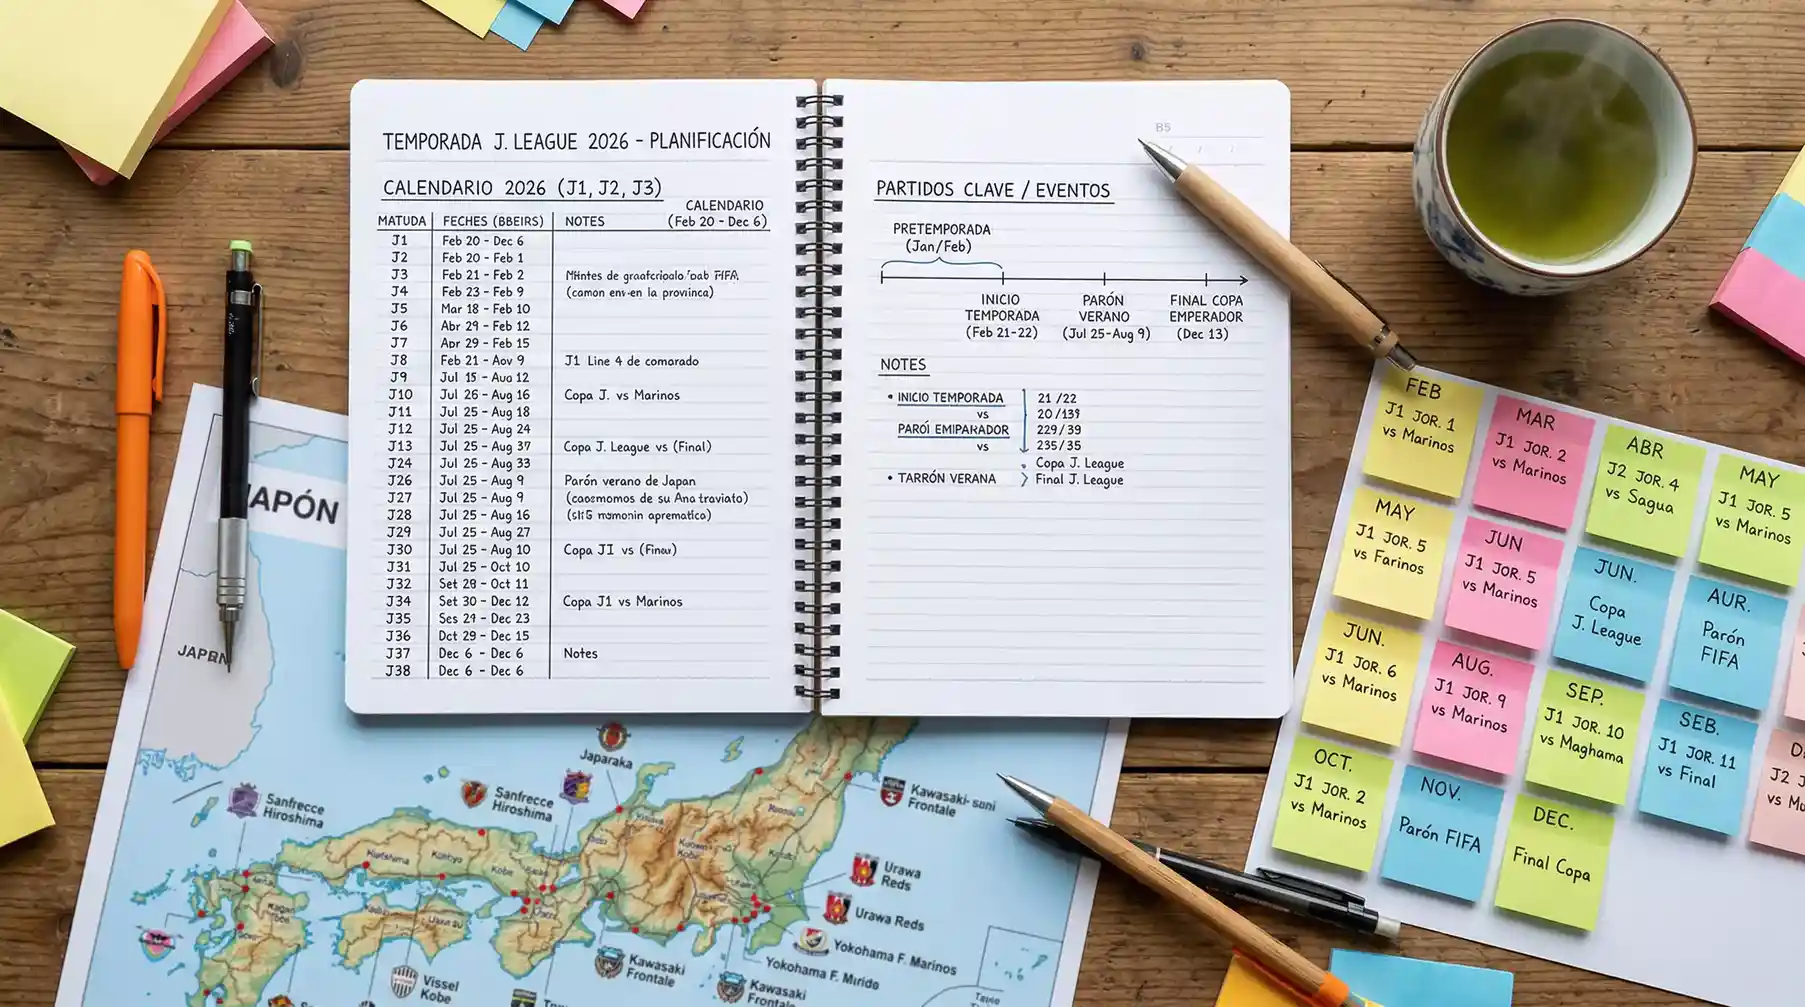 TEMPORADA J. LEAGUE 2026 - PLANIFICACIÓN
CALENDARIO 2026 (J1, J2, J3)
CALENDARIO
(Feb 20 - Dec 6)
MATUDA FECHES (BBEIRS) NOTES
J1 Feb 20 - Dec 6
J2 Feb 20 - Feb 1
J3 Feb 21 - Feb 2
J4 Feb 23 - Feb 9 (camon en-en la provinca)
J5 Mar 18 - Feb 10
J6 Abr 29 - Feb 12
J7 Apr 29 - Feb 15
J8 Feb 21 - Aov 9 J1 Line 4 de comorado
J9 Jul 15 - Aug 12
J10 Jul 26 - Aug 16 Copa J. vs Marinos
J11 Jul 25 - Aug 18
J12 Jul 25 - Aug 24
J13 Jul 25 - Aug 37 Copa J. League vs (Final)
J24 Jul 25 - Aug 33
J26 Jul 25 - Aug 9 Parón verano de Japan
J27 Jul 25 - Aug 9 (caosmomos de su Ana traviato)
J28 Jul 25 - Aug 16
J29 Jul 25 - Aug 27
J30 Jul 25 - Aug 10 Copa JI vs
J31 Jul 25 - Oct 10
J32 Set 28 - Oct 11
J34 Set 30 - Dec 12 Copa J1 vs Marinos
J35 Ses 29 - Dec 23
J36 Oct 29 - Dec 15
J37 Dec 6 - Dec 6 Notes
J38 Dec 6 - Dec 6
B5
PARTIDOS CLAVE / EVENTOS
PRETEMPORADA
(Jan/Feb)
INICIO
TEMPORADA
(Feb 21-22)
PARÓN
VERANO
(Jul 25-Aug 9)
FINAL COPA
EMPERADOR
(Dec 13)
NOTES
• INICIO TEMPORADA 21/22
vs 20/139
PARÓI EMIPARADOR 229/39
vs 235/35
Copa J. League
• TARRÓN VERANA Final J. League
FEB
J1 JOR. 1
vs Marinos
MAR
J1 JOR. 2
vs Marinos
ABR
J2 JOR. 4
vs Sagua
MAY
J1 JOR. 5
vs Marinos
MAY
J1 JOR. 5
vs Farinos
JUN
J1 JOR. 5
vs Marinos
JUN.
Copa
J. League
AUR.
Parón
FIFA
JUN.
J1 JOR. 6
vs Marinos
AUG.
J1 JOR. 9
vs Marinos
SEP.
J1 JOR. 10
vs Maghama
SEB.
J1 JOR. 11
vs Final
J2
OCT.
J1 JOR. 2
vs Marinos
NOV.
Parón FIFA
DEC.
Final Copa
JAPÓN
Japaraka
Sanfrecce
Hiroshima
Sanfrecce
Hiroshima
Kawasaki-suni
Frontale
Urawa
Reds
Urawa Reds
Yokohama F. Marinos
Yokohama F. Mirido
Kawasaki
Frontale
Kawasaki
Frontale
Vissel
Kobe